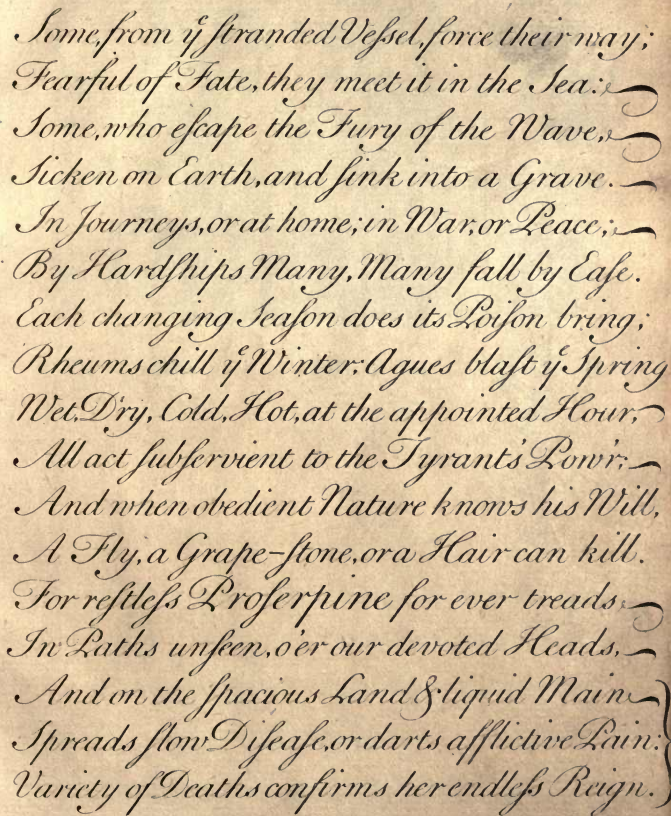 Some, from yͤ ſtranded Veſsel, force their way;
Fearful of Fate, they meet it in the Sea:
Some, who eſcape the Fury of the Wave,
Sicken on Earth, and ſink into a Grave.
In Journeys, or at home; in War, or Peace;
By Hardſhips Many, Many fall by Eaſe.
Each changing Seaſon does its Poiſon bring;
Rheums chill yͤ Winter; Agues blaſt yͤ Spring
Wet, Dry, Cold, Hot, at the appointed Hour,
All act ſubſervient to the Tyrant's Pow'r;
And when obedient Nature knows his Will,
A Fly, a Grape-ſtone, or a Hair can kill.
For reſtleſs Proſerpine for ever treads
In Paths unſeen, o'er our devoted Heads,
And on the ſpacious Land & liquid Main
Spreads ſlow Diſeaſe, or darts afflictive Pain:
Variety of Deaths confirms her endleſs Reign.